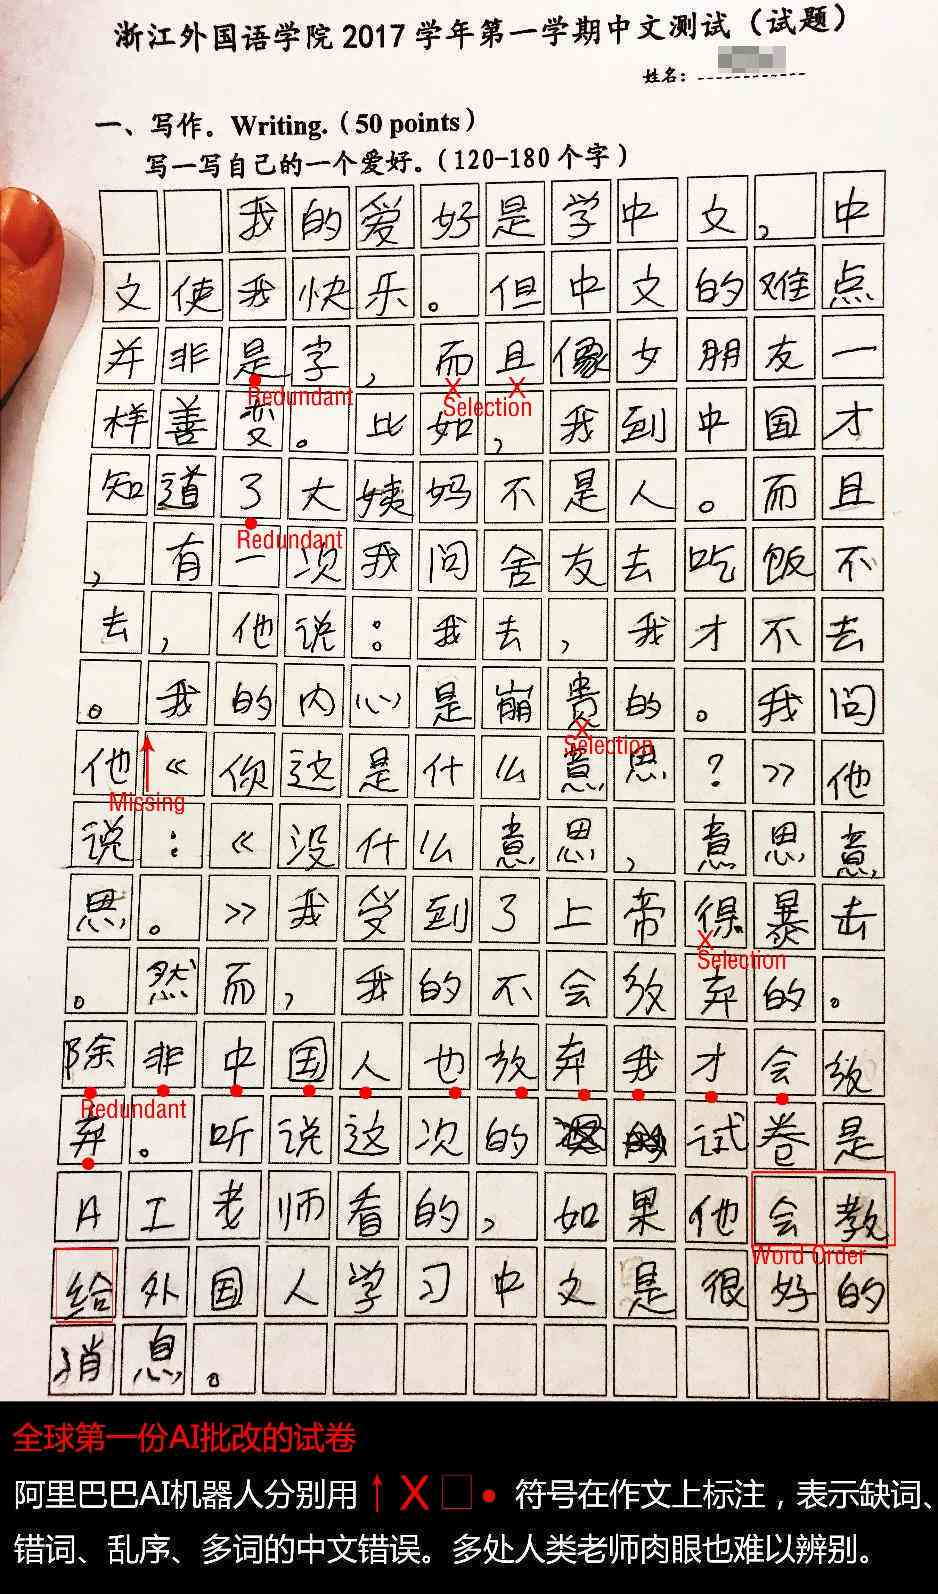 浙江外国语学院2017学年第一学期中文测试（试题）
姓名：
一、写作。Writing.（50 points）
写一写自己的一个爱好。（120-180个字）
我的爱好是学中文，中
文使我快乐。但中文的难点
并非是字，而且像女朋友一
Redundant
Selection
样善变。比如，我到中国才
知道了大姨妈不是人。而且
Redundant
，有一次我问舍友去吃饭不
去，他说：我去，我才不去
。我的内心是崩贵的。我问
Selection
他《你这是什么意思？》他
Missing
说：《没什么意思，意思意
思。》我受到了上帝得暴击
Selection
。然而，我的不会放弃的。
除非中国人也放弃我才会放
Redundant
弃。听说这次的试卷是
AI老师看的，如果他会教
Word Order
给外国人学习中文是很好的
消息。
全球第一份AI批改的试卷
阿里巴巴AI机器人分别用↑X□● 符号在作文上标注，表示缺词、
错词、乱序、多词的中文错误。多处人类老师肉眼也难以辨别。